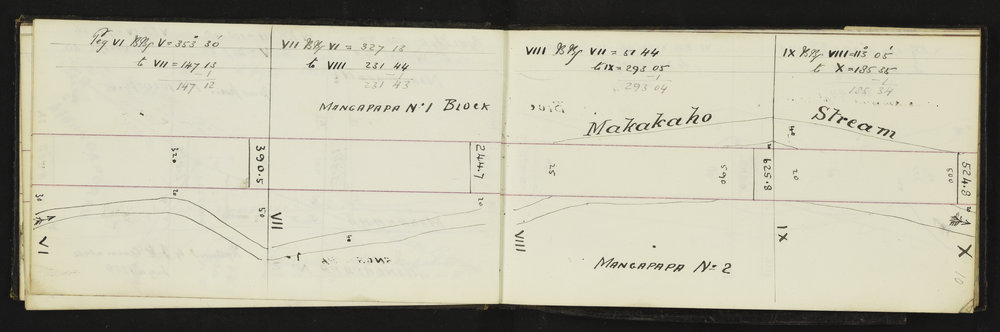 Peg VI Bkg V = 353° 30'
to VII = 147 13
-1
147 12
VII Bkg VI = 327 13
to VIII 231 44
-1
231 43
MANGAPAPA No 1 BLOCK
VIII Bkg VII = 51 44
to IX = 293 05
-1
293 04
IX Bkg VIII = 113° 05'
to X = 135 35
-1
135 34
Makakaho Stream
320
390.5
244.7
25
590
625.8
40
20
500
524.8
30
20
50
40
20
VI
VII
VIII
IX
X
MANGAPAPA No 2
10